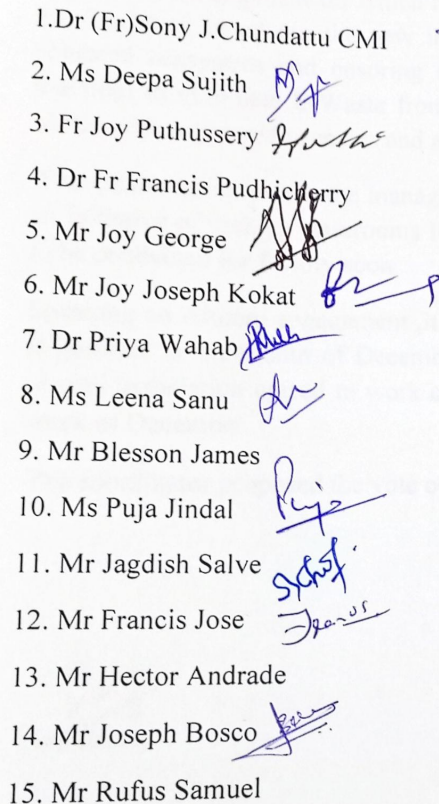 1.Dr (Fr)Sony J.Chundattu CMI
2. Ms Deepa Sujith
3. Fr Joy Puthussery
4. Dr Fr Francis Pudhicherry
5. Mr Joy George
6. Mr Joy Joseph Kokat
7. Dr Priya Wahab
8. Ms Leena Sanu
9. Mr Blesson James
10. Ms Puja Jindal
11. Mr Jagdish Salve
12. Mr Francis Jose
13. Mr Hector Andrade
14. Mr Joseph Bosco
15. Mr Rufus Samuel